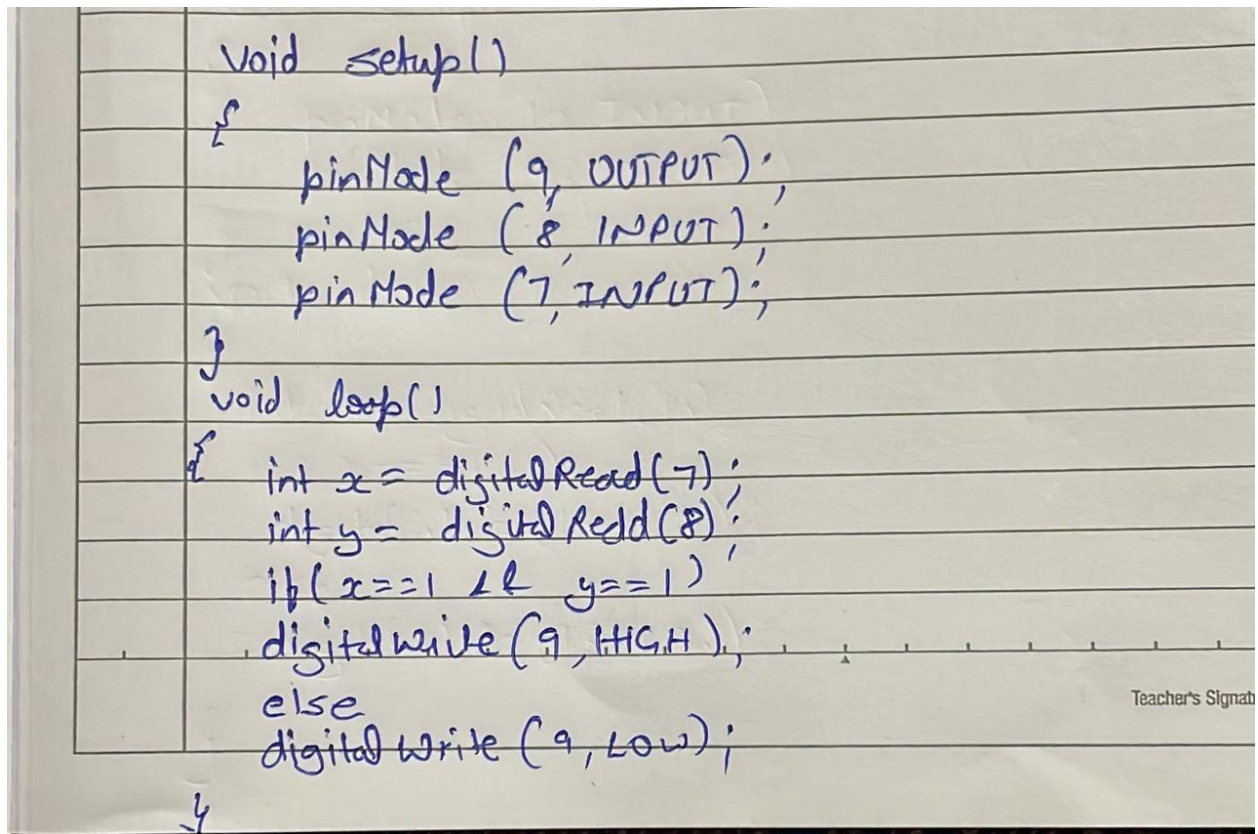 void setup()
{
pinMode (9, OUTPUT);
pinMode (8, INPUT);
pinMode (7, INPUT);
}
void loop()
{ int x = digitalRead(7);
int y = digitalRedd(8);
if(x==1 && y==1)
digitalWrite(9, HIGH);
else
Teacher's Signat
digitalWrite(9, LOW);
}